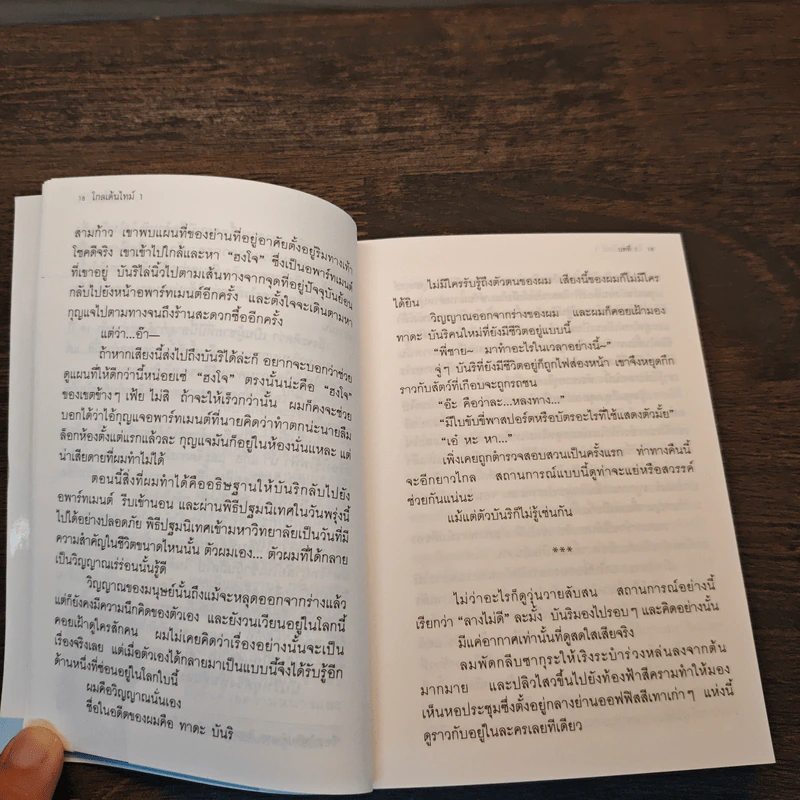 18 โกลเด้นไทม์ 1
สามก้าว เขาพบแผ่นที่ของย่านที่อยู่อาศัยตั้งอยู่ริมทางเท้า
โชคดีจริง เขาเข้าไปใกล้และหา “ฮงโจ” ซึ่งเป็นอพาร์ทเมนต์
ที่เขาอยู่ บันริไล่นิ้วไปตามเส้นทางจากจุดที่อยู่ปัจจุบันย้อน
กลับไปยังหน้าอพาร์ทเมนต์อีกครั้ง และตั้งใจจะเดินตามหา
กุญแจไปตามทางจนถึงร้านสะดวกซื้ออีกครั้ง
แต่ว่า...อ๊า—
ถ้าหากเสียงนี้ส่งไปถึงบันริได้ล่ะก็ อยากจะบอกว่าช่วย
ดูแผนที่ให้ดีกว่านี้หน่อยเซ่ “ฮงโจ” ตรงนั้นน่ะคือ “ฮงโจ”
ของเขตข้างๆ เฟ้ย ไม่สิ ถ้าจะให้เร็วกว่านั้น ผมก็คงจะช่วย
บอกได้ว่าไอ้กุญแจอพาร์ทเมนต์ที่นายคิดว่าทำตกน่ะนายลืม
ล็อกห้องตั้งแต่แรกแล้วละ กุญแจมันก็อยู่ในห้องนั่นแหละ แต่
น่าเสียดายที่ผมทำไม่ได้
ตอนนี้สิ่งที่ผมทำได้คืออธิษฐานให้บันริกลับไปยัง
อพาร์ทเมนต์ รีบเข้านอน และผ่านพิธีปฐมนิเทศในวันพรุ่งนี้
ไปได้อย่างปลอดภัย พิธีปฐมนิเทศเข้ามหาวิทยาลัยเป็นวันที่มี
ความสำคัญในชีวิตขนาดไหนนั้น ตัวผมเอง... ตัวผมที่ได้กลาย
เป็นวิญญาณเร่ร่อนนั้นรู้ดี
วิญญาณของมนุษย์นั้นถึงแม้จะหลุดออกจากร่างแล้ว
แต่ก็ยังคงมีความนึกคิดของตัวเอง และยังวนเวียนอยู่ในโลกนี้
คอยเฝ้าดูใครสักคน ผมไม่เคยคิดว่าเรื่องอย่างนั้นจะเป็น
เรื่องจริงเลย แต่เมื่อตัวเองได้กลายมาเป็นแบบนี้จึงได้รับรู้อีก
ด้านหนึ่งที่ซ่อนอยู่ในโลกใบนี้
ผมคือวิญญาณนั่นเอง
ชื่อในอดีตของผมคือ ทาดะ บันริ
บทที่ 1 19
ไม่มีใครรับรู้ถึงตัวตนของผม เสียงนี้ของผมก็ไม่มีใคร
ได้ยิน
วิญญาณออกจากร่างของผม และผมก็คอยเฝ้ามอง
ทาดะ บันริคนใหม่ที่ยังมีชีวิตอยู่แบบนี้
“พี่ชาย~ มาทำอะไรในเวลาอย่างนี้~”
จู่ๆ บันริที่ยังมีชีวิตอยู่ก็ถูกไฟส่องหน้า เขาจึงหยุดกึก
ราวกับสัตว์ที่เกือบจะถูกรถชน
“อ๊ะ คือว่าละ...หลงทาง...”
“มีใบขับขี่พาสปอร์ตหรือบัตรอะไรที่ใช้แสดงตัวมั้ย”
“เอ๋ หะ หา...”
เพิ่งเคยถูกตำรวจสอบสวนเป็นครั้งแรก ท่าทางคืนนี้
จะอีกยาวไกล สถานการณ์แบบนี้ดูท่าจะแย่หรือสวรรค์
ช่วยกันแน่นะ
แม้แต่ตัวบันริก็ไม่รู้เช่นกัน
***
ไม่ว่าอะไรก็ดูวุ่นวายสับสน สถานการณ์อย่างนี้
เรียกว่า “ลางไม่ดี” ละมั้ง บันริมองไปรอบๆ และคิดอย่างนั้น
มีแค่อากาศเท่านั้นที่ดูสดใสเสียจริง
ลมพัดกลีบซากุระให้เริงระบำร่วงหล่นลงจากต้น
มากมาย และปลิวไสวขึ้นไปยังท้องฟ้าสีครามทำให้มอง
เห็นหอประชุมซึ่งตั้งอยู่กลางย่านออฟฟิสสีเทาเก่าๆ แห่งนี้
ดูราวกับอยู่ในละครเลยทีเดียว